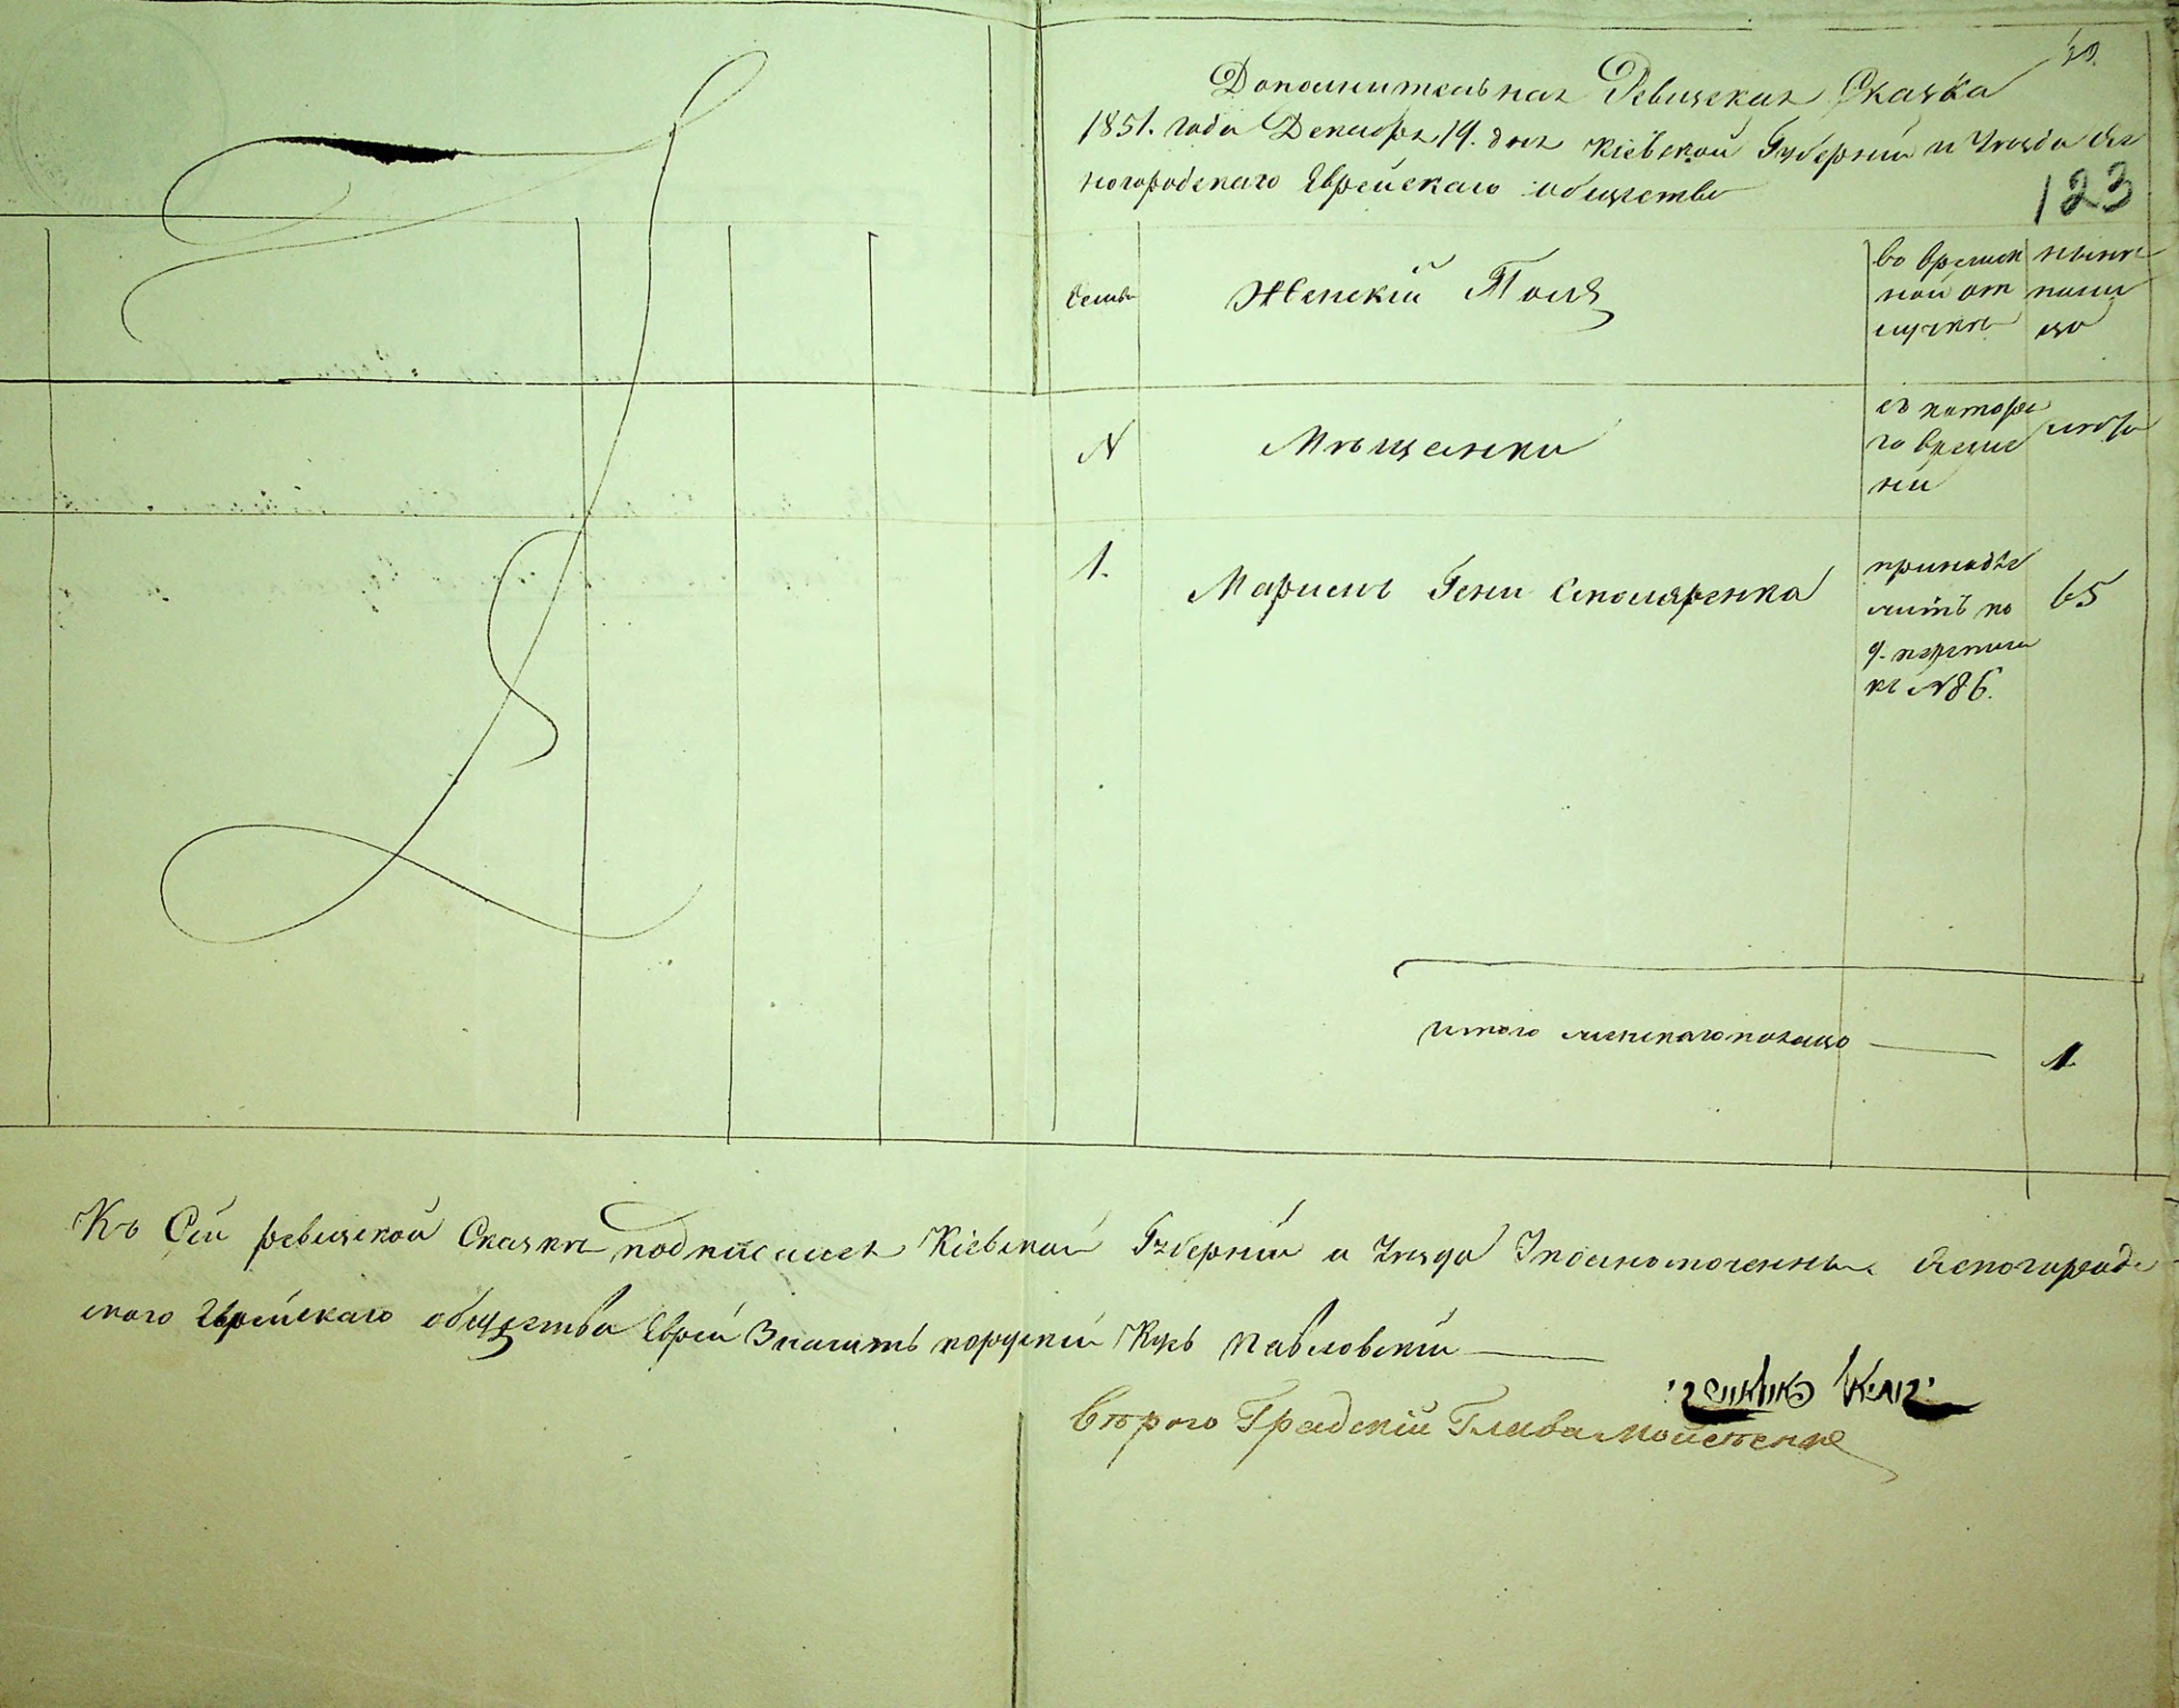 Дополнительная Ревизская Сказка
1851. года Декабря 19. дня Кіевской Губерніи и Уезда Яс
ногородскаго Еврейскаго общества
123
Семьи
Женскій Полъ
во времен
ной от
лучкѣ
нынѣ
на ли
цо
N
Мѣщанки
съ которо
го време
ни
лѣта
1.
Мариемъ Гени Столяренка
принадле
житъ по
9. переписи
къ N86.
65
итого женскаго на лицо
1
Къ Сей ревизской Сказкѣ подписался Кіевской Губерніи и Уезда Ясногород
скаго Еврейскаго общества Еврей Значитъ Павловскій
Градскій Глава